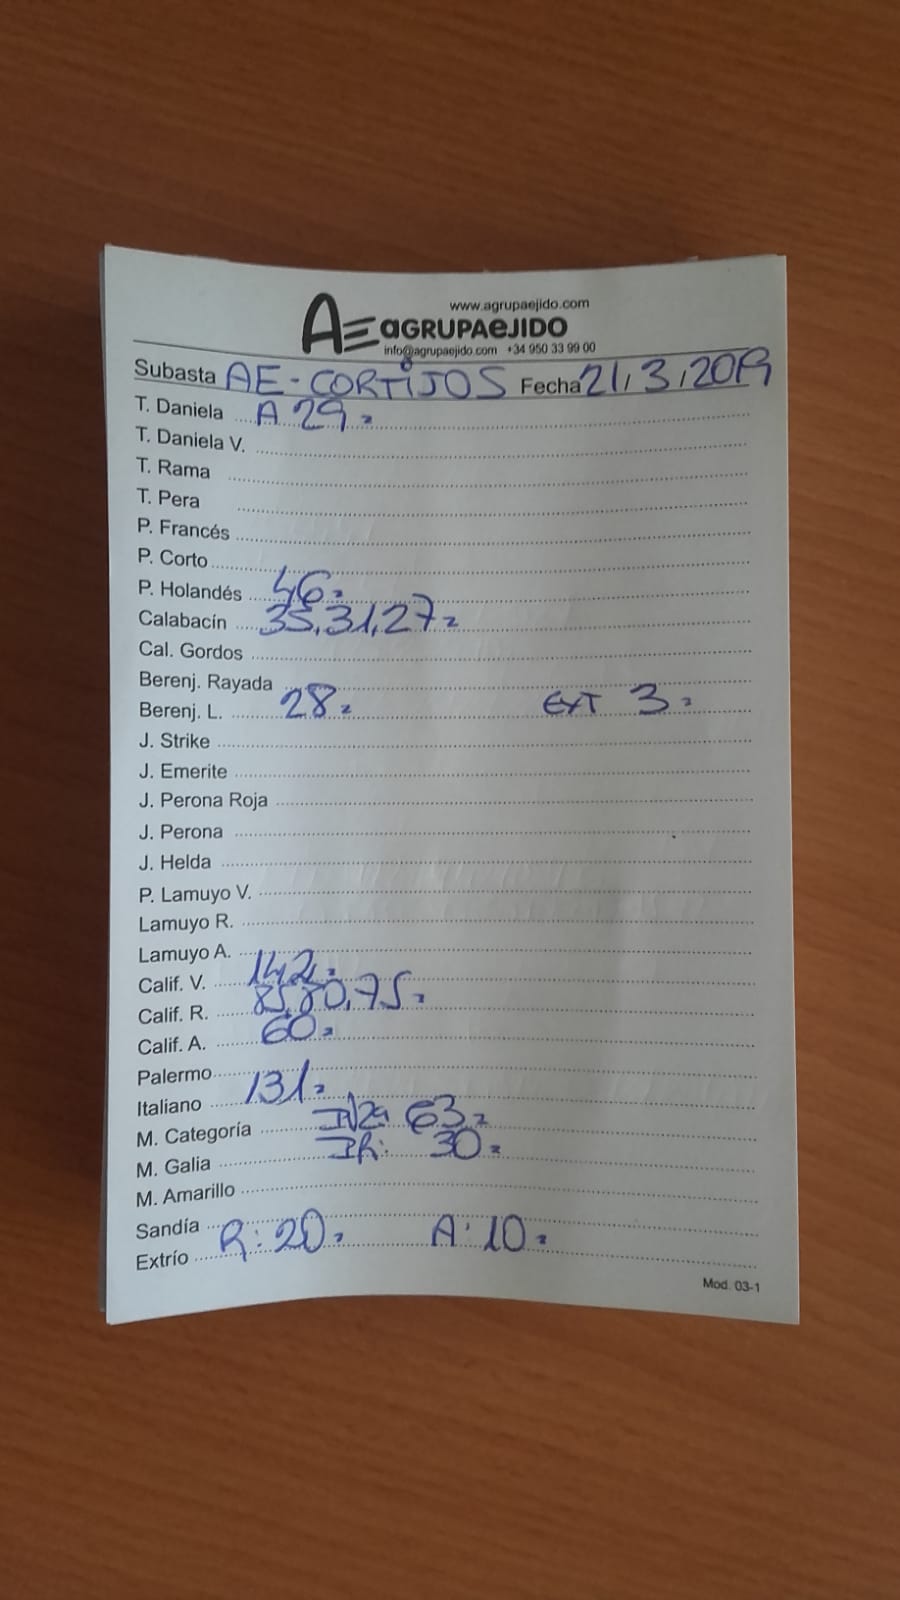 www.agrupaejido.com
AE aGRUPAeJIDO
info@agrupaejido.com +34 950 33 99 00
Subasta AE-CORTIJOS Fecha 21/3/2019
T. Daniela A 29=
T. Daniela V.
T. Rama
T. Pera
P. Francés
P. Corto
P. Holandés 46=
Calabacín 35,31,27=
Cal. Gordos
Berenj. Rayada
Berenj. L. 28= EXT 3=
J. Strike
J. Emerite
J. Perona Roja
J. Perona
J. Helda
P. Lamuyo V.
Lamuyo R.
Lamuyo A.
Calif. V. 142=
Calif. R. 85,80,75=
Calif. A. 60=
Palermo
Italiano 131=
M. Categoría 63=
M. Galia 30=
M. Amarillo
Sandía
Extrío R: 20= A: 10=
Mod. 03-1